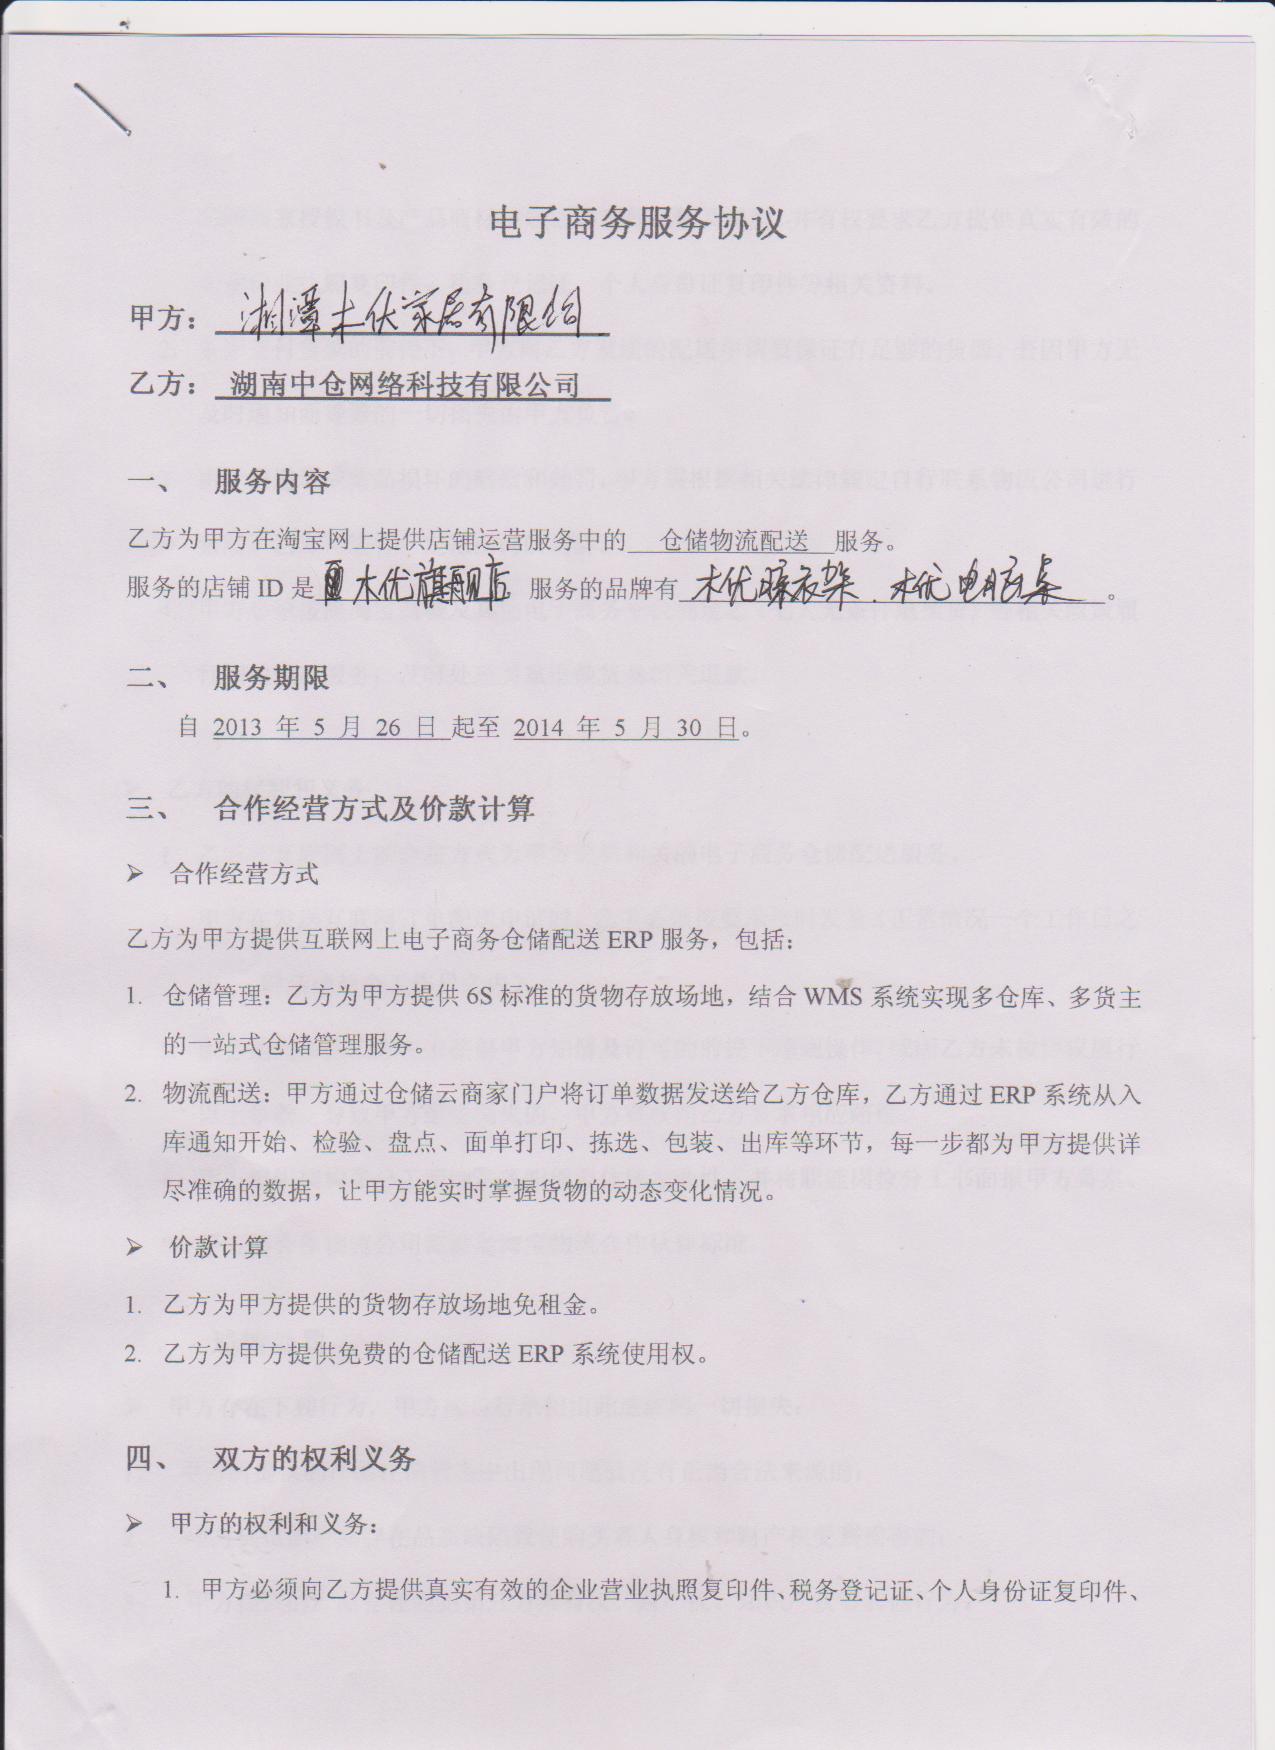 电子商务服务协议
甲方：湘潭木优家居有限公司
乙方：湖南中仓网络科技有限公司
一、 服务内容
乙方为甲方在淘宝网上提供店铺运营服务中的 仓储物流配送 服务。
服务的店铺 ID 是 木优旗舰店 服务的品牌有 木优晾衣架 . 木优电脑桌 。
二、 服务期限
自 2013 年 5 月 26 日 起至 2014 年 5 月 30 日。
三、 合作经营方式及价款计算
➢ 合作经营方式
乙方为甲方提供互联网上电子商务仓储配送 ERP 服务，包括：
1. 仓储管理：乙方为甲方提供 6S 标准的货物存放场地，结合 WMS 系统实现多仓库、多货主
的一站式仓储管理服务。
2. 物流配送：甲方通过仓储云商家门户将订单数据发送给乙方仓库，乙方通过 ERP 系统从入
库通知开始、检验、盘点、面单打印、拣选、包装、出库等环节，每一步都为甲方提供详
尽准确的数据，让甲方能实时掌握货物的动态变化情况。
➢ 价款计算
1. 乙方为甲方提供的货物存放场地免租金。
2. 乙方为甲方提供免费的仓储配送 ERP 系统使用权。
四、 双方的权利义务
➢ 甲方的权利和义务：
1. 甲方必须向乙方提供真实有效的企业营业执照复印件、税务登记证、个人身份证复印件、